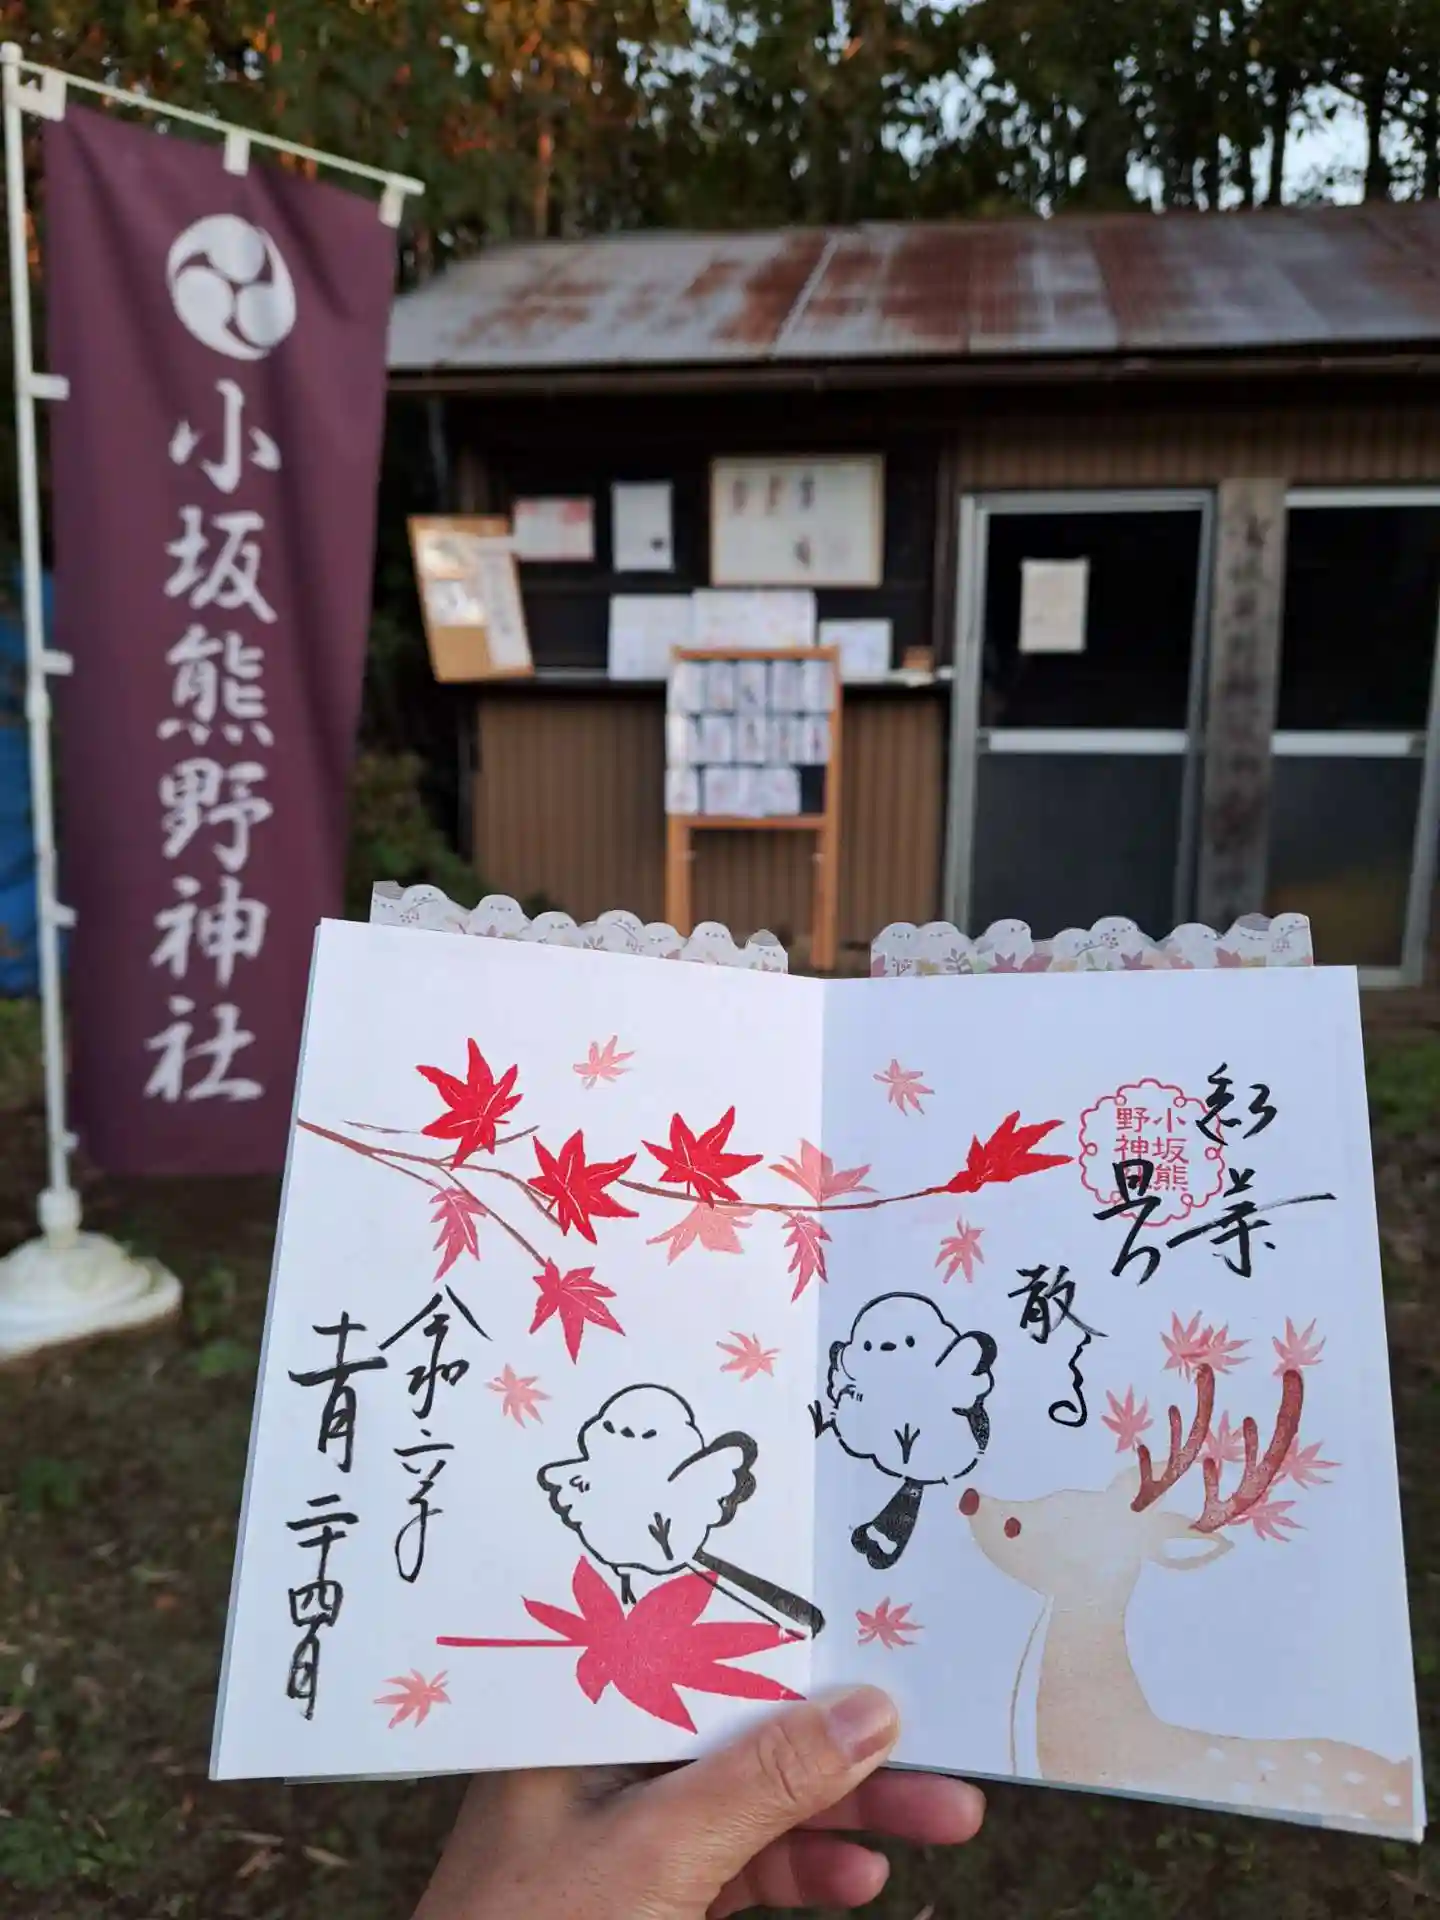 小坂熊野神社
紅葉
且つ
散る
小坂熊
野神
令和六年
十一月二十四日